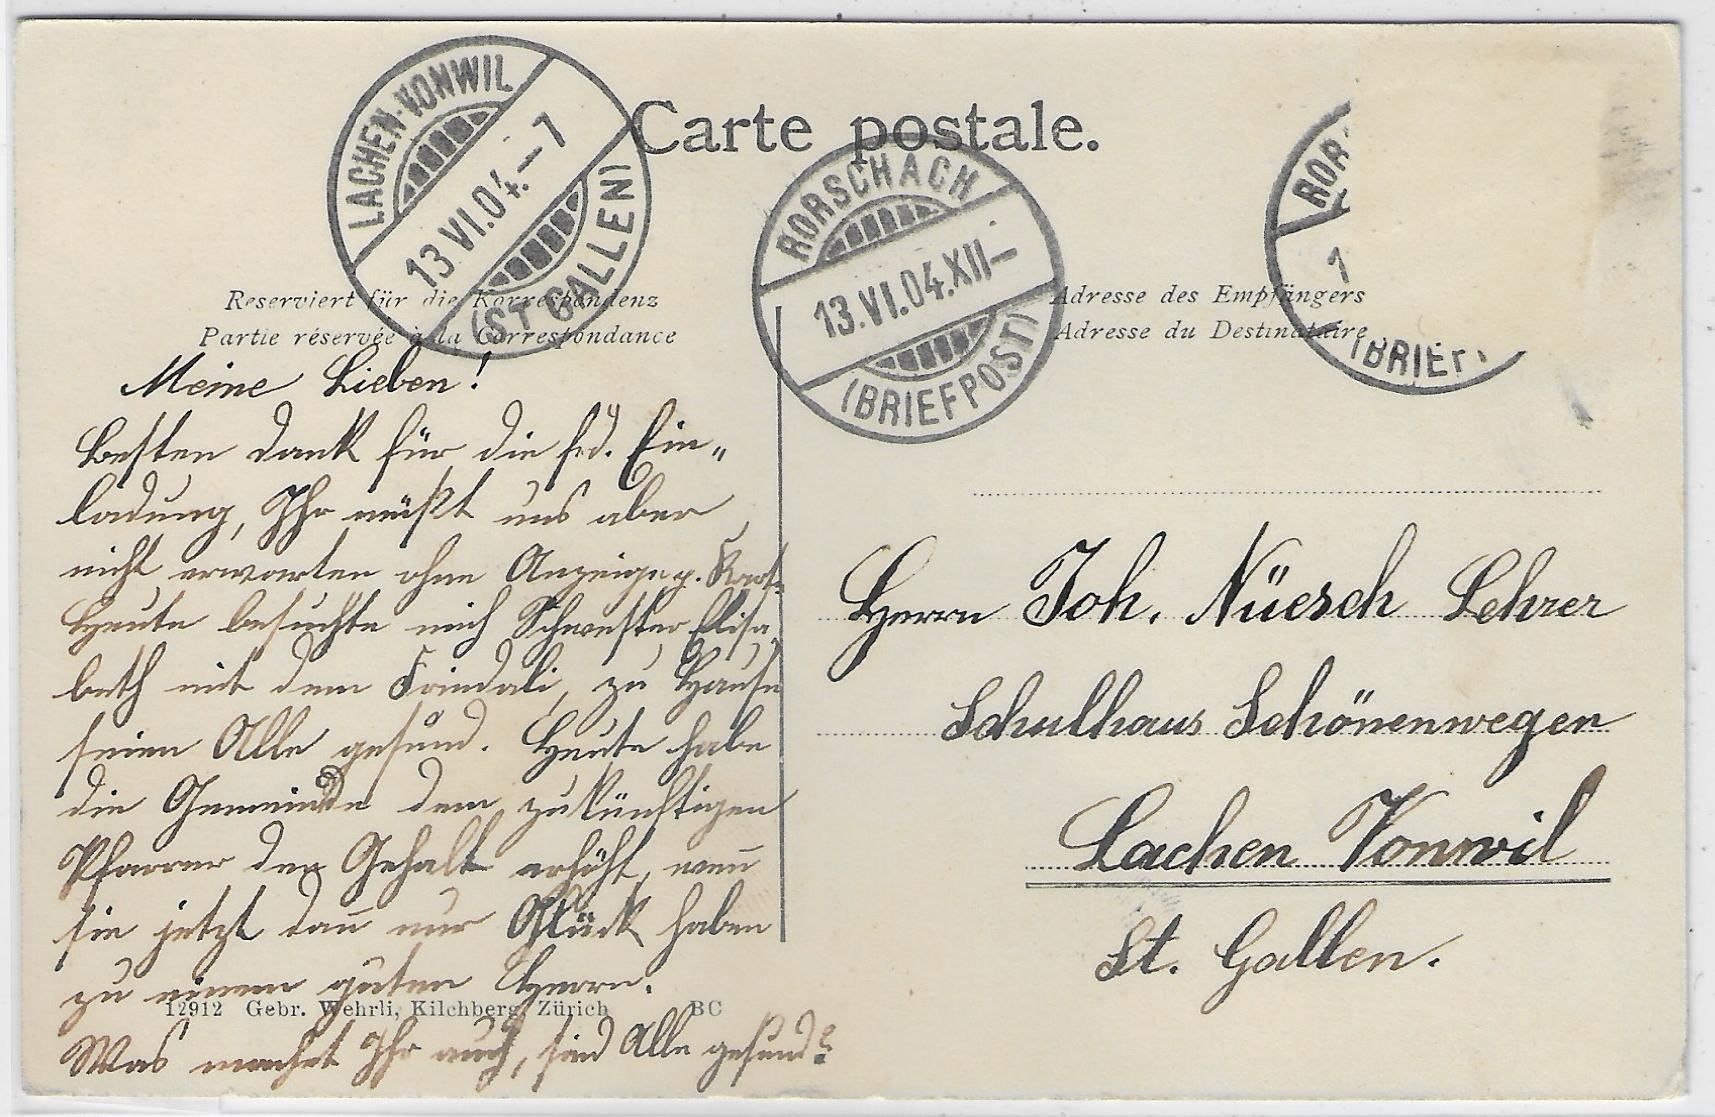 Carte postale.
LACHEN-VONWIL
13 VI.04.–7
(ST GALLEN)
RORSCHACH
13.VI.04.XII–
(BRIEFPOST)
ROR
1
(BRIEF
Reserviert für die Korrespondenz
Partie réservée à la Correspondance
Adresse des Empfängers
Adresse du Destinataire
Meine Lieben!
Besten Dank für die frd. Ein-
ladung, Ihr müßt uns aber
nicht erwarten ohne Anzeige p. Karte.
Heute besuchte mich Schwester Elisa-
beth mit dem Friedali, zu Hause
seien Alle gesund. Heute habe
die Gemeinde dem zukünftigen
Pfarrer den Gehalt erhöht, wenn
sie jetzt dann nur Glück haben
zu einem guten Herrn.
12912 Gebr. Wehrli, Kilchberg, Zürich BC
Was machet Ihr auch, sind Alle gesund?
Herrn Joh. Nüesch Lehrer
Schulhaus Schönenwegen
Lachen Vonwil
St. Gallen.